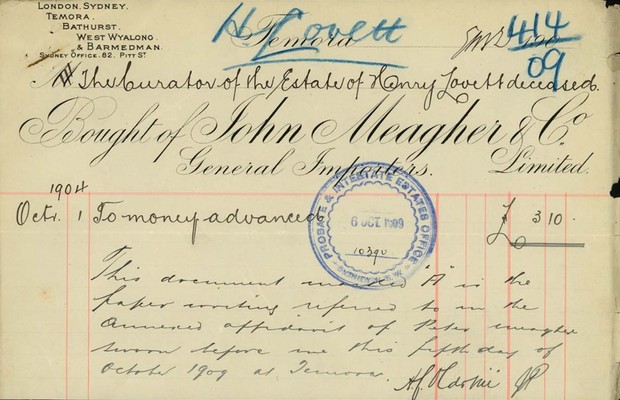 LONDON, SYDNEY,
TEMORA,
BATHURST,
WEST WYALONG
& BARMEDMAN.
SYDNEY OFFICE. 62. PITT ST
H Lovett
414
09
Temora
M The Curator of the Estate of Henry Lovett deceased.
Bought of John Meagher & Co
General Importers. Limited.
1904
Octr. 1 To money advanced £ 3 10 .
PROBATE & INTESTATE ESTATES OFFICE
6 OCT 1909
10390
SYDNEY N.S.W.
This document marked "A" is the
paper writing referred to in the
annexed affidavit of Peter Meagher
sworn before me this fifth day of
October 1909 at Temora.
JP